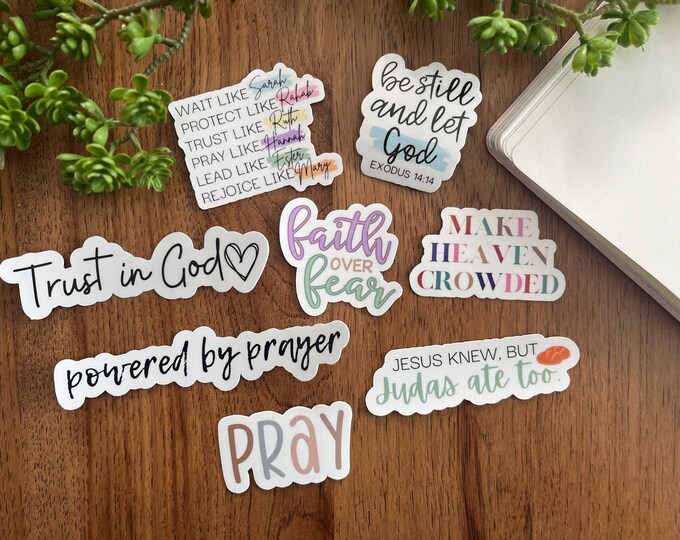 WAIT LIKE Sarah
PROTECT LIKE Rahab
TRUST LIKE Ruth
PRAY LIKE Hannah
LEAD LIKE Ester
REJOICE LIKE Mary
be still
and let
God
EXODUS 14:14
Trust in God
faith
OVER
fear
MAKE
HEAVEN
CROWDED
powered by prayer
JESUS KNEW, BUT
Judas ate too.
PRAY